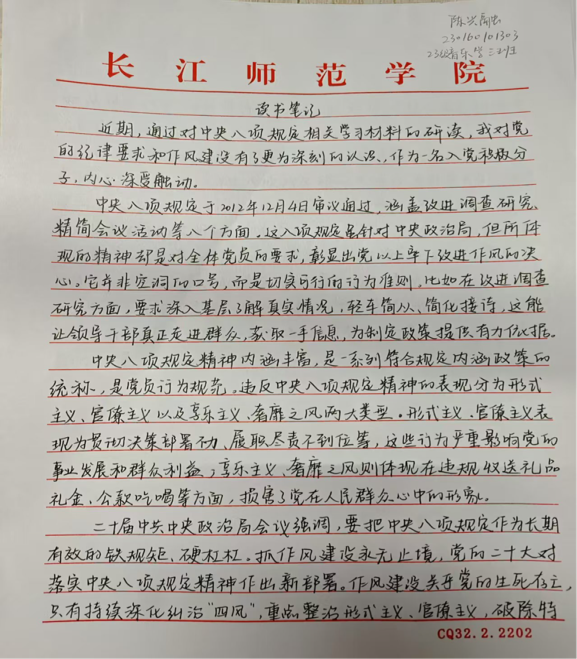 230160101303
长江师范学院
读书笔记
近期，通过对中央八项规定相关学习材料的研读，我对党
的纪律要求和作风建设有了更为深刻的认识，作为一名入党积极分
子，内心深受触动。
中央八项规定于2012年12月4日审议通过，涵盖改进调查研究、
精简会议活动等八个方面，这八项规定虽针对中央政治局，但所体
现的精神却是对全体党员的要求，彰显出党以上率下改进作风的决
心。它并非空洞的口号，而是切实可行的行为准则，比如在改进调查
研究方面，要求深入基层了解真实情况，轻车简从、简化接待，这能
让领导干部真正走进群众，获取一手信息，为制定政策提供有力依据。
中央八项规定精神内涵丰富，是一系列符合规定内涵政策的
统称，是党员行为规范。违反中央八项规定精神的表现分为形式
主义、官僚主义以及享乐主义、奢靡之风两大类型。形式主义、官僚主义表
现为贯彻决策部署不力、履职尽责不到位等，这些行为严重影响党的
事业发展和群众利益；享乐主义、奢靡之风则体现在违规收送礼品
礼金、公款吃喝等方面，损害了党在人民群众心中的形象。
二十届中共中央政治局会议强调，要把中央八项规定作为长期
有效的铁规矩、硬杠杠。抓作风建设永无止境，党的二十大对
落实中央八项规定精神作出新部署。作风建设关乎党的生死存亡，
只有持续深化纠治“四风”，重点整治形式主义、官僚主义，破除特
CQ32.2.2202